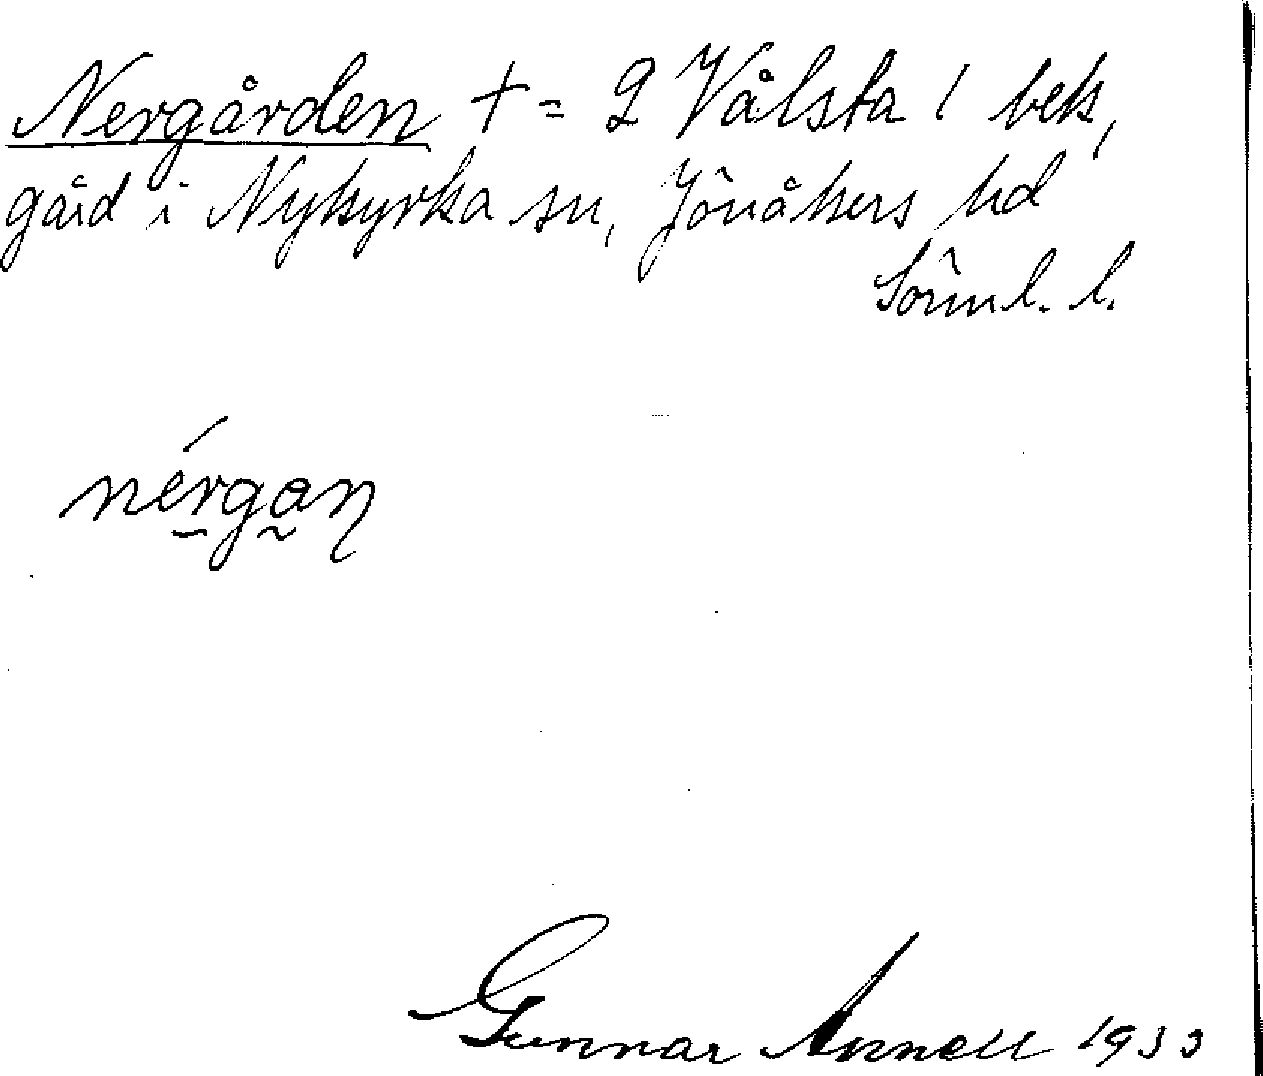 Nergården + = 2 Vålsta 1 bek,
gård i Nykyrka sn, Jönåkers hd
Sörml. l.
nérgan
Gunnar Annell 1933